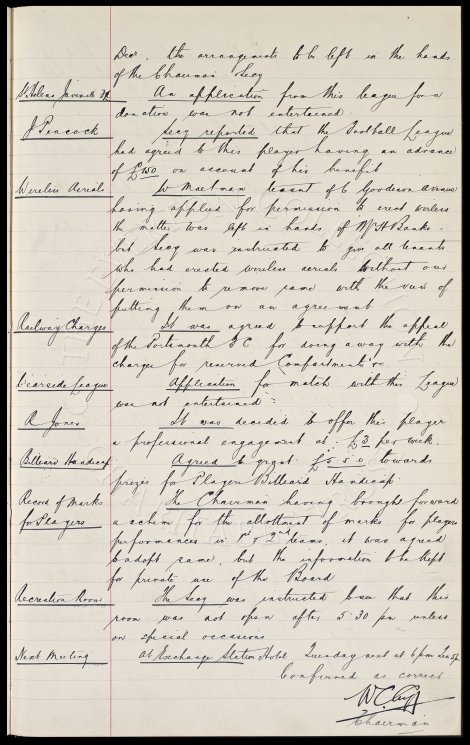 Decr. the arrangements to be left in the hands
of the Chairman Secy
St. Helens Juvenile
An application from this league for a
donation was not entertained
J Peacock
Secy reported that the Football League
had agreed to this player having an advance
of £150 on account of his benefit
Wireless Aerials
W Maetman tenant of 6 Goodison Avenue
having applied for permission to erect wireless
the matter was left in hands of Mr H Banks.
but Secy was instructed to give all tenants
who had erected wireless aerials without our
permission to remove same with the view of
putting them on an agreement
Railway Charges
It was agreed to support the appeal
of the Portsmouth F C for doing away with the
charges for reserved Compartments
Wearside League
Application for match with this League
was not entertained
A Jones
It was decided to offer this player
a professional engagement at £3 per week.
Billiard Handicap
Agreed to grant £5 5 0 towards
prizes for Player Billiard Handicap
Record of Marks
for Players
The Chairman having brought forward
a scheme for the allotment of marks for players
performances in 1st & 2nd teams, it was agreed
to adopt same, but the information to be kept
for private use of the Board
Recreation Room
The Secy was instructed to see that this
room was not open after 5.30 pm unless
on special occasions
Next Meeting
at Exchange Station Hotel Tuesday next at 6 pm
Confirmed as correct
W C Cuff
Chairman